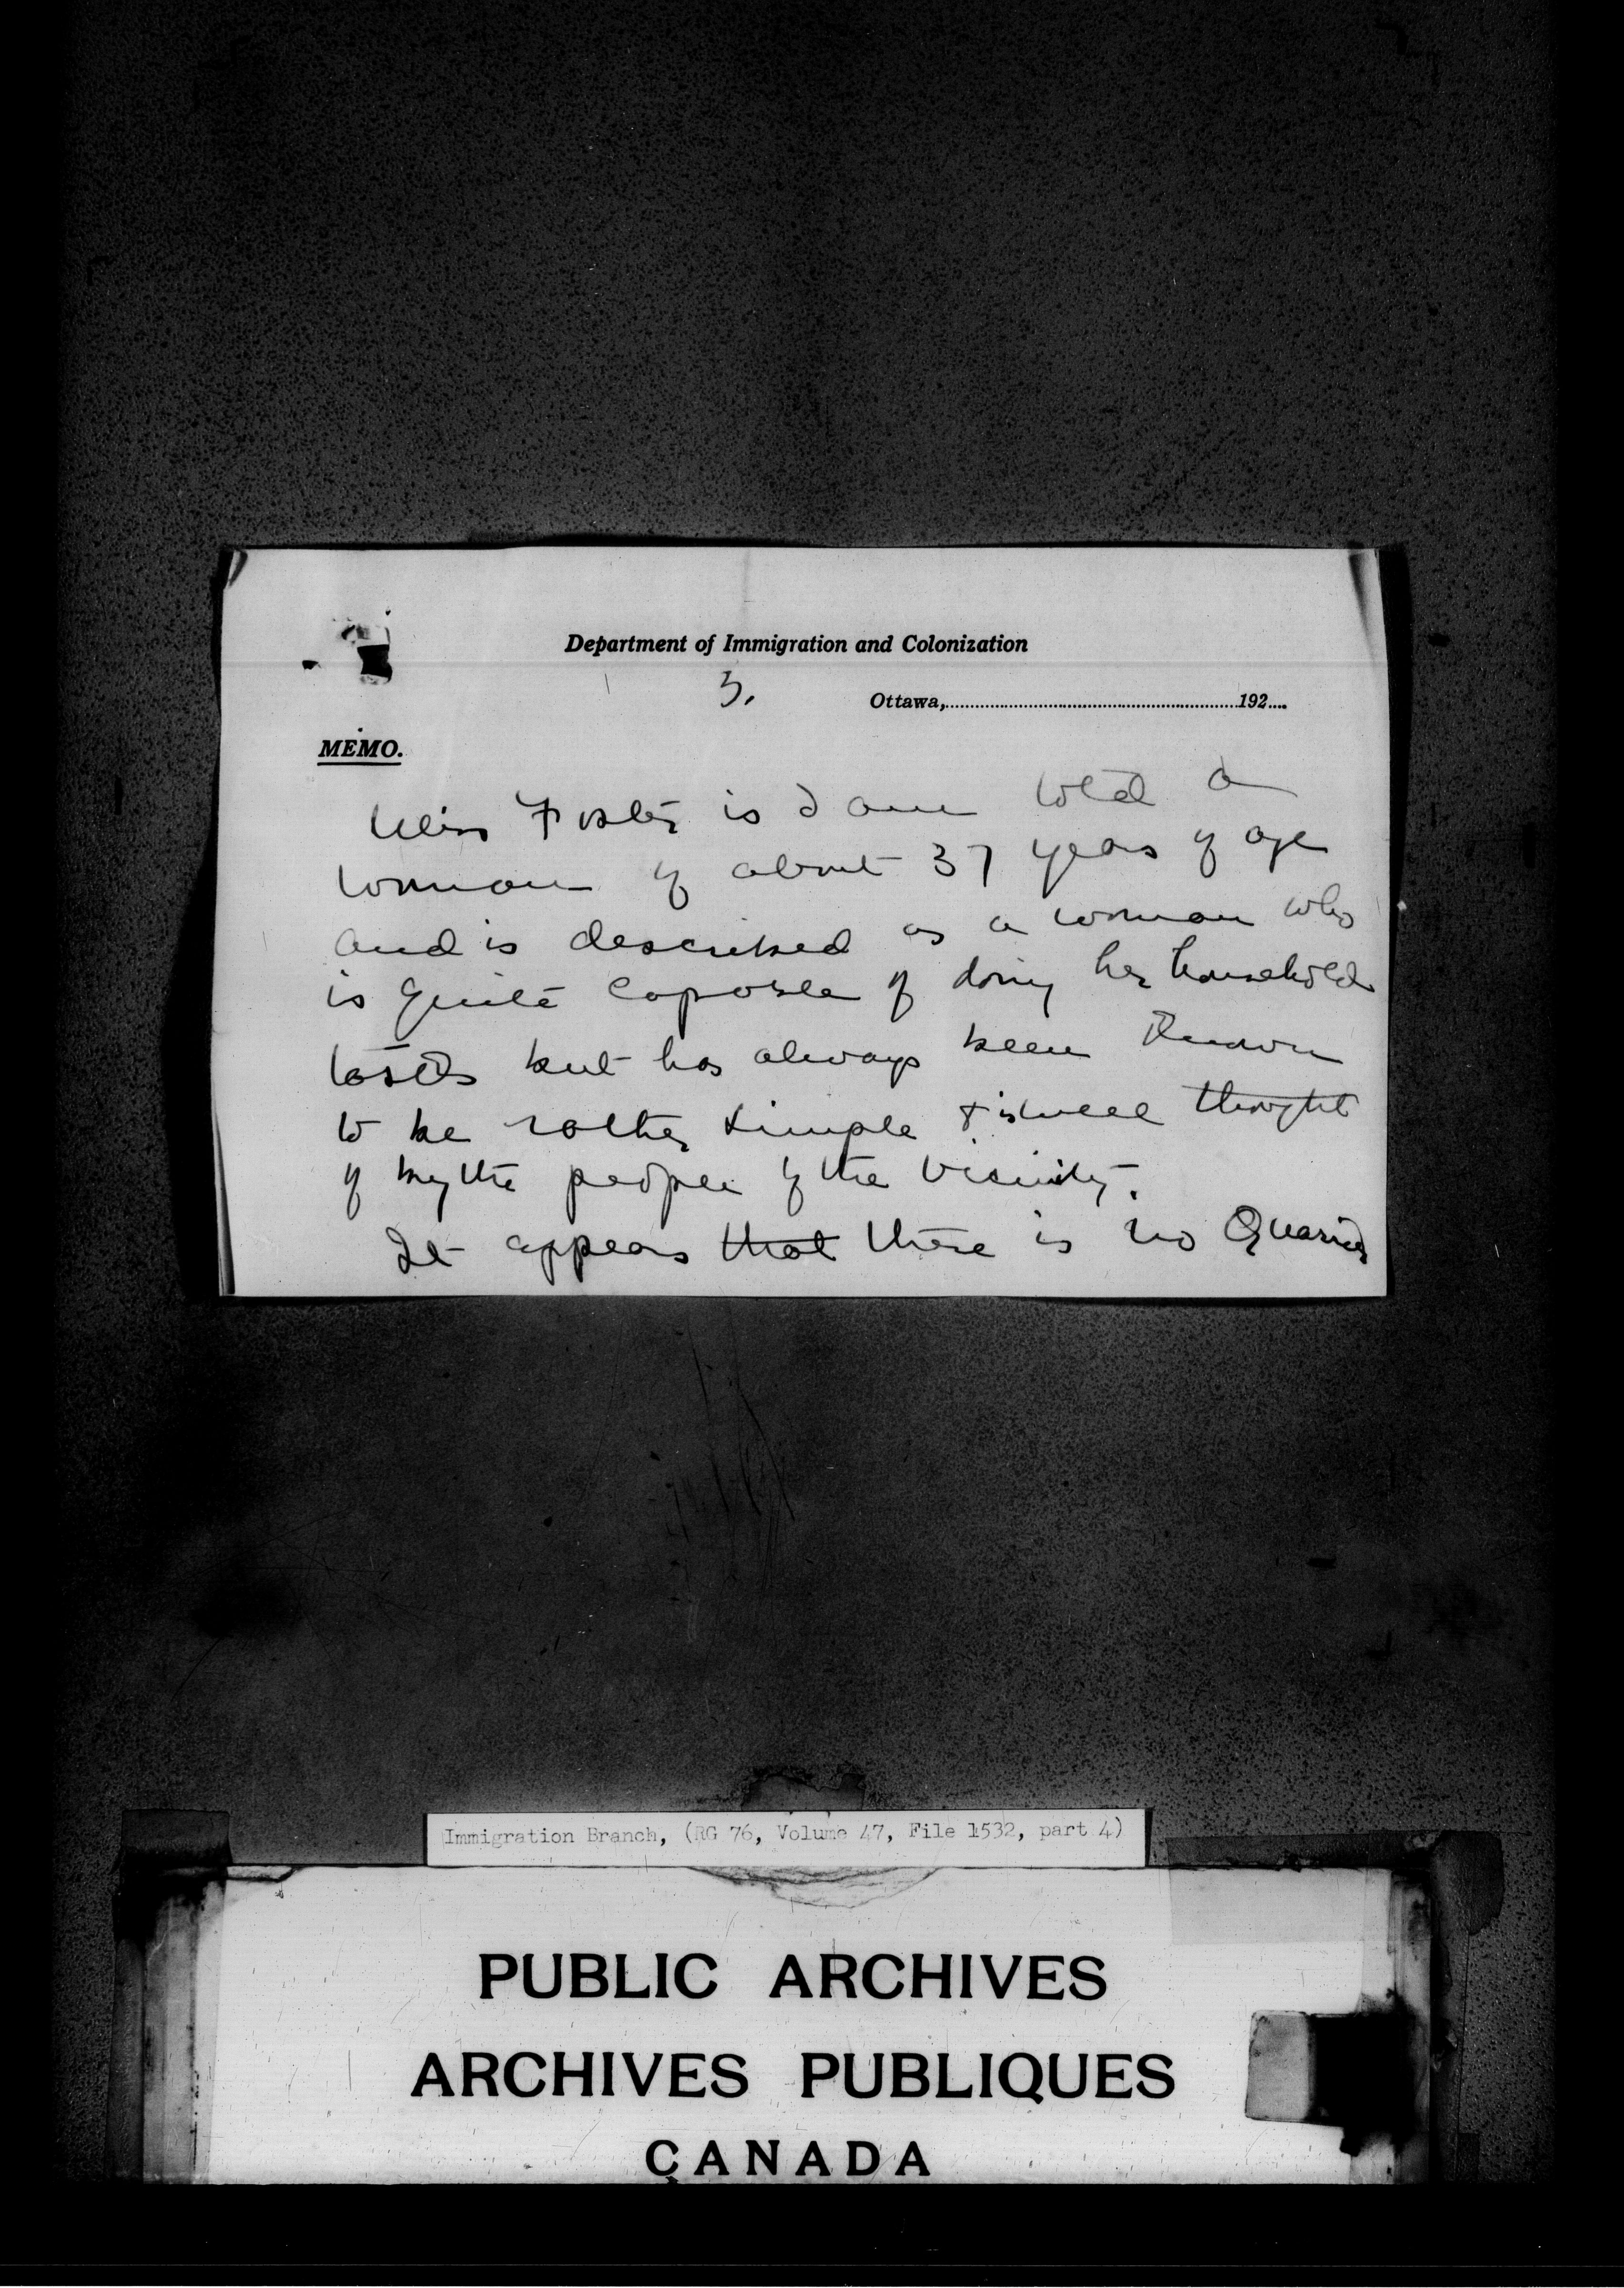 Department of Immigration and Colonization
3.
Ottawa,..........192....
MEMO.
Miss Foster is I am told a
woman of about 37 years of age
and is described as a woman who
is quite capable of doing her household
tasks but has always been known
to be rather simple & is well thought
of by the people of the vicinity.
It appears that there is no Quarrier
Immigration Branch, (RG 76, Volume 47, File 1532, part 4)
PUBLIC ARCHIVES
ARCHIVES PUBLIQUES
CANADA